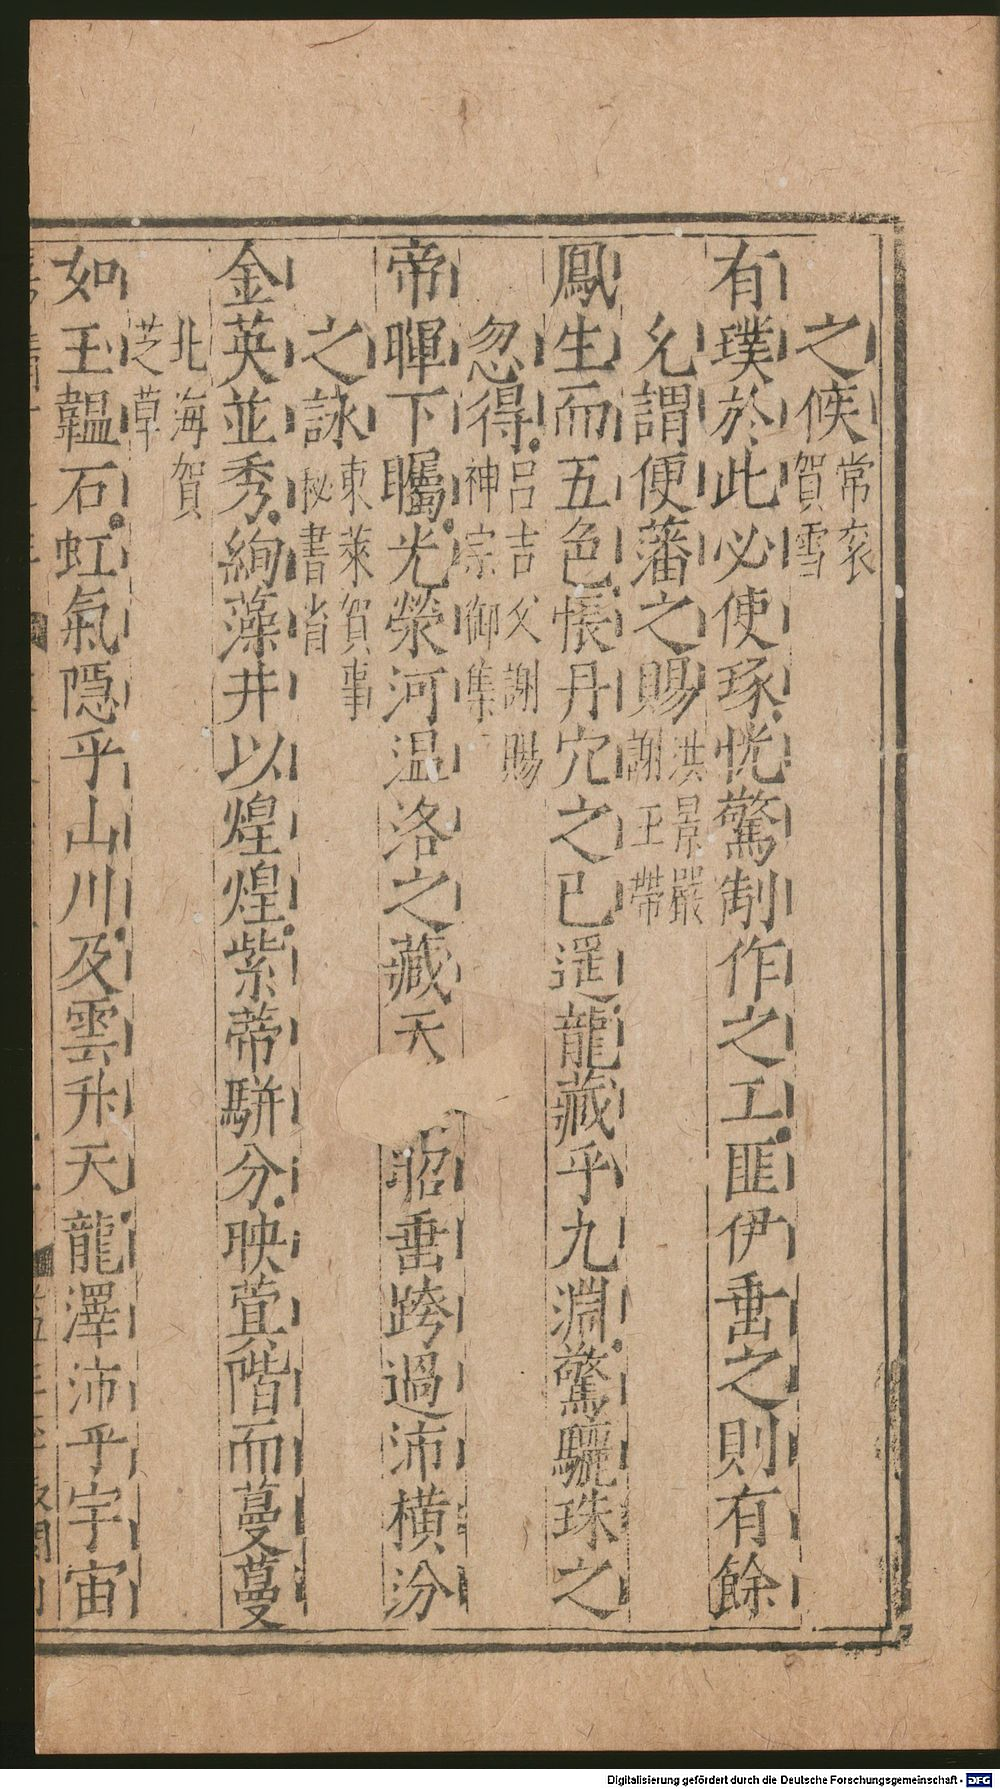 之候 常衮賀雪
有璞於此必使琢恍驚制作之工匪伊垂之則有餘
允謂便蕃之賜 洪景嚴謝玉帶
鳳生而五色悵丹穴之已遥龍藏乎九淵驚驪珠之
忽得 呂吉父謝賜神宗御集
帝暉下矚光榮河温洛之藏天 昭垂跨過沛橫汾
之詠 東萊賀事秘書省
金英並秀絢藻井以煌煌紫蒂駢分映蓂階而蔓蔓
北海賀芝草
如玉韞石虹氣隠乎山川及雲升天龍澤沛乎宇宙
Digitalisierung gefördert durch die Deutsche Forschungsgemeinschaft - DFG